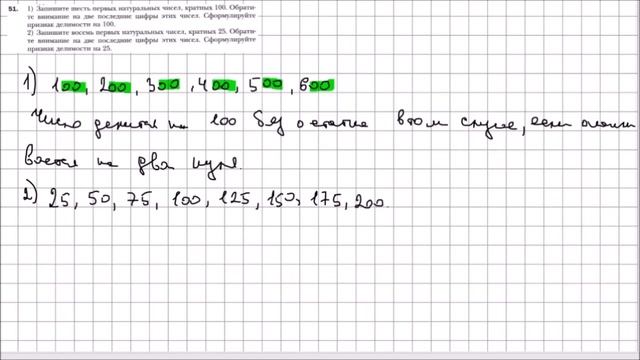 51. 1) Запишите шесть первых натуральных чисел, кратных 100. Обрати-
те внимание на две последние цифры этих чисел. Сформулируйте
признак делимости на 100.
2) Запишите восемь первых натуральных чисел, кратных 25. Обрати-
те внимание на две последние цифры этих чисел. Сформулируйте
признак делимости на 25.
1) 100, 200, 300, 400, 500, 600
Число делится на 100 без остатка в том случае, если оканчи
вается на два нуля.
2) 25, 50, 75, 100, 125, 150, 175, 200.